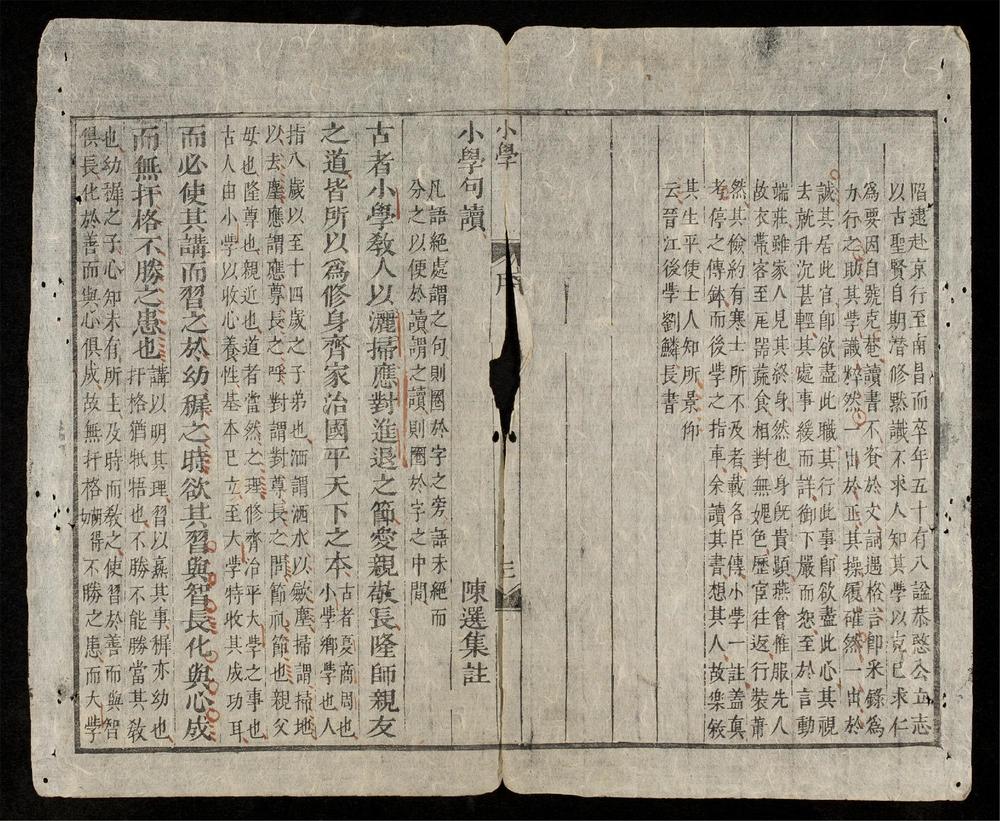 陷逮赴京行至南昌而卒年五十有八謚恭愍公立志
以古聖賢自期潛修默識不求人知其學以克己求仁
為要因自號克菴讀書不資於文詞遇格言即采錄為
力行之助其學識粹然一出於正其操履確然一出於
誠其居此官即欲盡此職其行此事即欲盡此心其視
去就升沉甚輕其處事緩而詳御下嚴而恕至於言動
端莊雖家人見其終身然也身既貴顯燕會惟服先人
故衣帶客至瓦器蔬食相對無媿色歷宦往返行裝蕭
然其儉約有寒士所不及者載名臣傳小學一註蓋真
考停之傳鉢而後學之指車余讀其書想其人故樂敘
其生平使士人知所景仰
云晉江後學劉鱗長書
小學
序
三
小學句讀
陳選集註
凡語絕處謂之句則圈於字之旁語未絕而
分之以便於讀謂之讀則圈於字之中間
古者小學教人以灑掃應對進退之節愛親敬長隆師親友
之道皆所以為修身齊家治國平天下之本
古者夏商周也
小學鄉學也人
指八歲以至十四歲之子弟也洒謂洒水以斂塵掃謂掃地
以去塵應謂應尊長之呼對謂對尊長之問節礼節也親父
母也隆尊也親近也道者當然之理修齊治平大學之事也
古人由小學以收心養性基本已立至大學特收其成功耳
而必使其講而習之於幼穉之時欲其習與智長化與心成
而無扞格不勝之患也
講以明其理習以熹其事穉亦幼也
扞格猶牴牾也不勝不能勝當其教
也幼穉之子心知未有所主及時而教之使習於善而與智
俱長化於善而與心俱成故無扞格嫲得不勝之患而大學